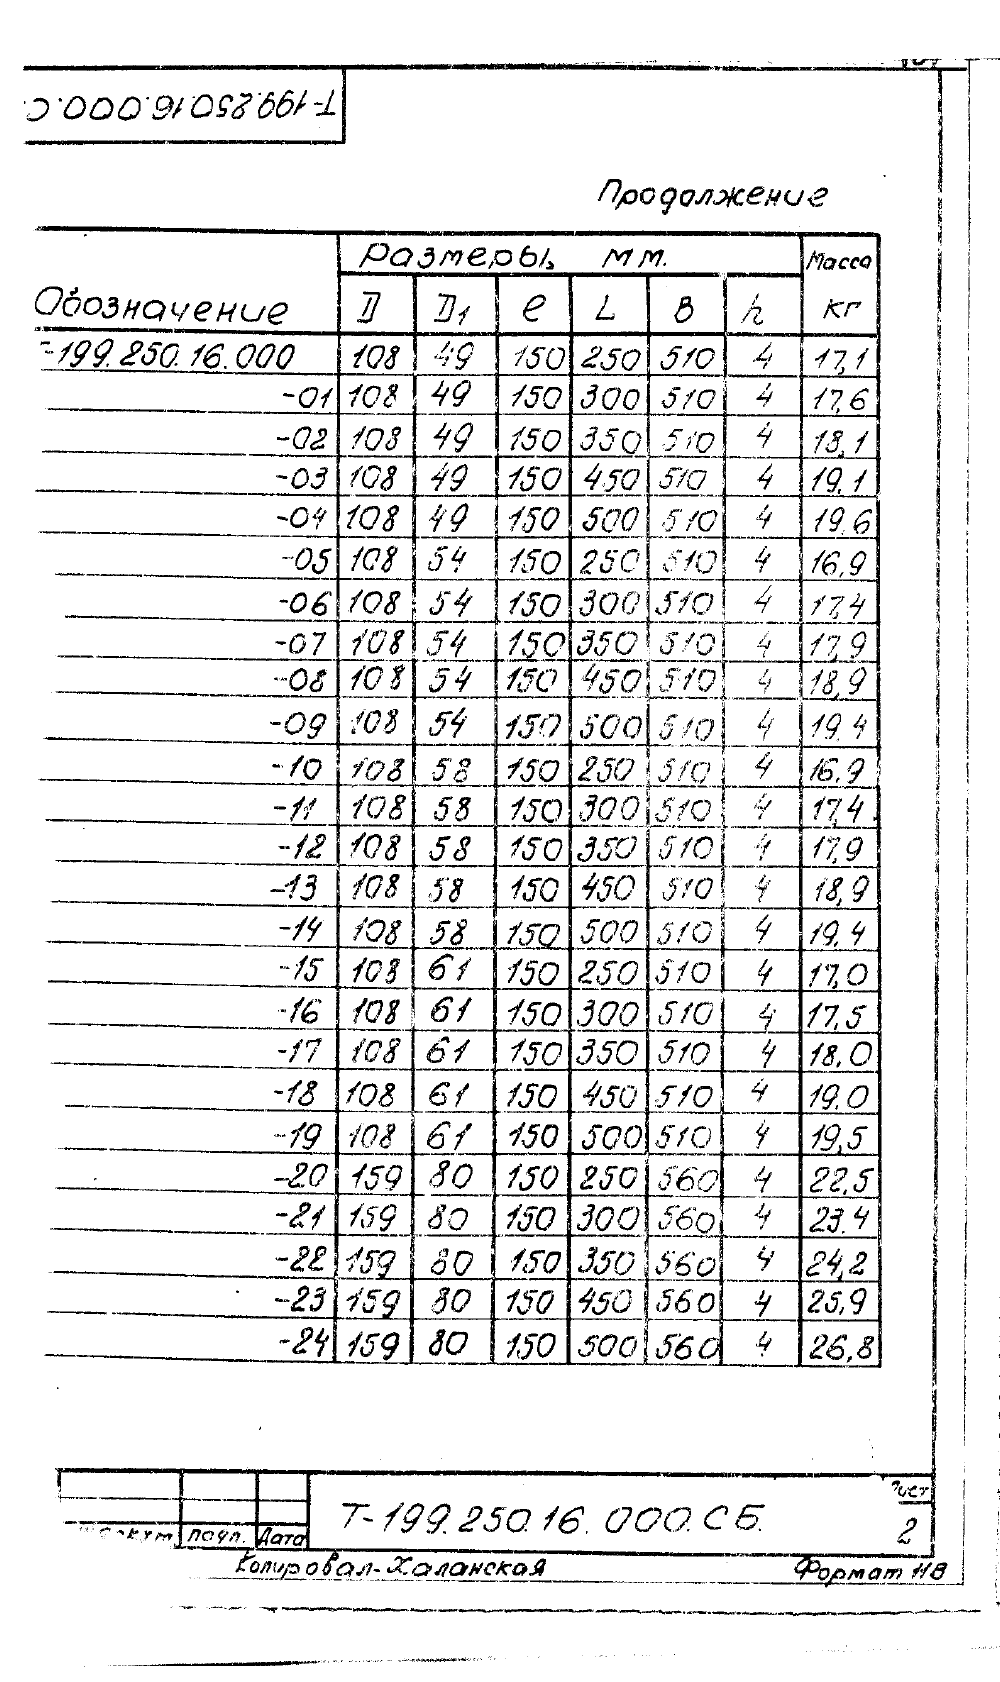 Т-199.250.16.000.С
Продолжение
Обозначение Размеры, мм. Масса кг
D D1 ℓ L B h
Т-199.250.16.000 108 49 150 250 510 4 17,1
-01 108 49 150 300 510 4 17,6
-02 108 49 150 350 510 4 18,1
-03 108 49 150 450 510 4 19,1
-04 108 49 150 500 510 4 19,6
-05 108 54 150 250 510 4 16,9
-06 108 54 150 300 510 4 17,4
-07 108 54 150 350 510 4 17,9
-08 108 54 150 450 510 4 18,9
-09 108 54 150 500 510 4 19.4
-10 108 58 150 250 510 4 16,9
-11 108 58 150 300 510 4 17,4
-12 108 58 150 350 510 4 17,9
-13 108 58 150 450 510 4 18,9
-14 108 58 150 500 510 4 19,4
-15 108 61 150 250 510 4 17,0
-16 108 61 150 300 510 4 17,5
-17 108 61 150 350 510 4 18,0
-18 108 61 150 450 510 4 19.0
-19 108 61 150 500 510 4 19,5
-20 159 80 150 250 560 4 22,5
-21 159 80 150 300 560 4 23.4
-22 159 80 150 350 560 4 24,2
-23 159 80 150 450 560 4 25,9
-24 159 80 150 500 560 4 26,8
подп. Дата
Т-199.250.16.000.СБ.
Лист
2
Копировал-Халанская Формат 11В